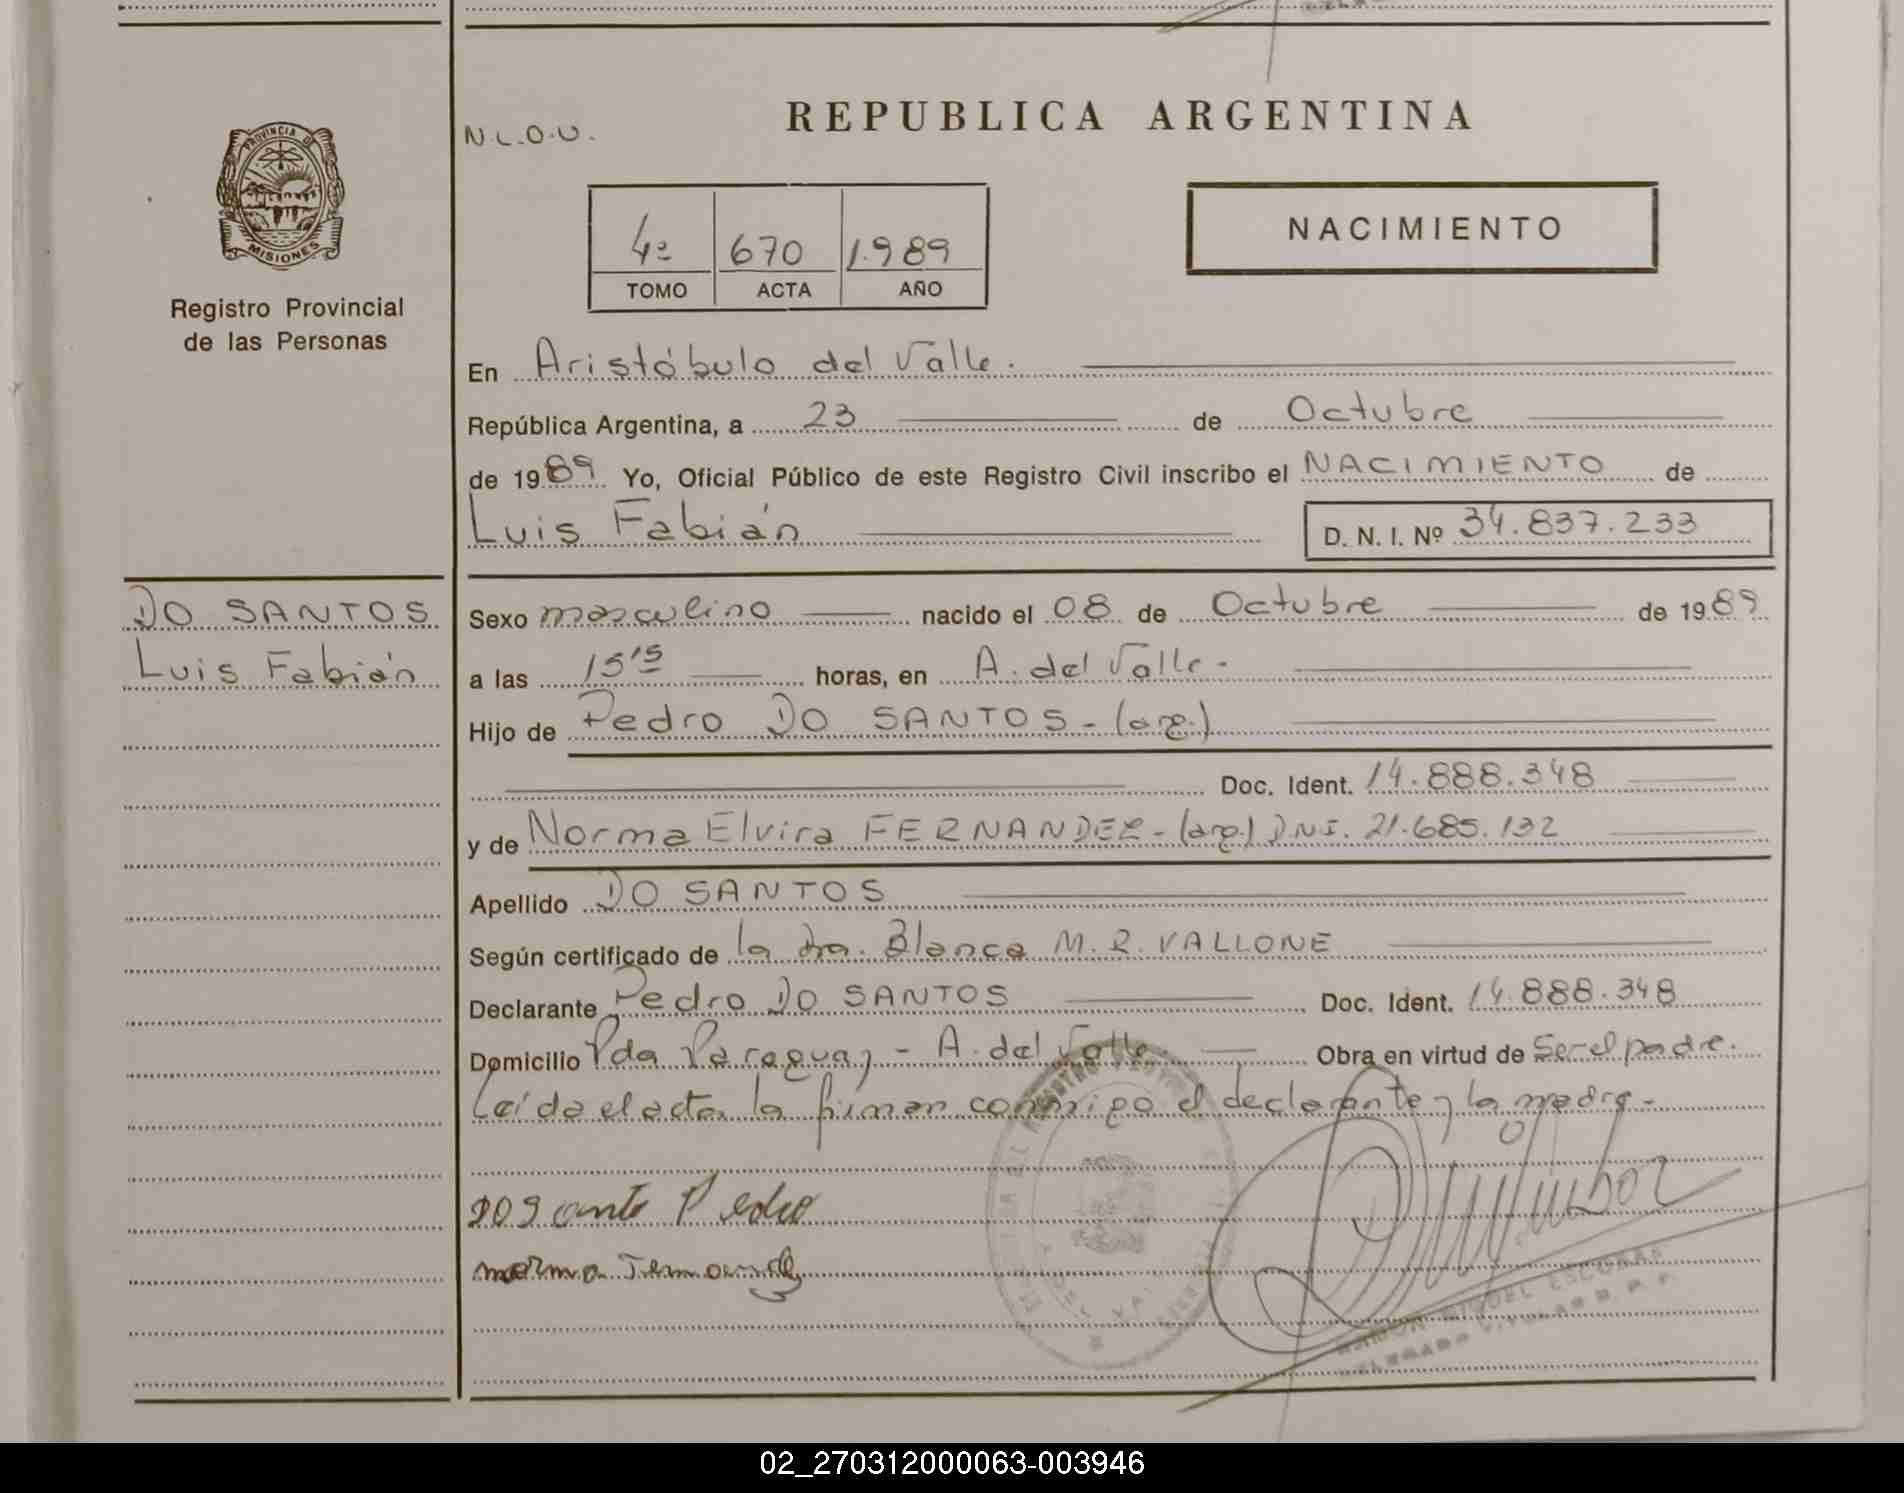 PROVINCIA DE
MISIONES
Registro Provincial
de las Personas
DO SANTOS
Luis Fabián
N.L.O.U.
REPUBLICA ARGENTINA
4º 670 1.989
TOMO ACTA AÑO
NACIMIENTO
En Aristóbulo del Valle.
República Argentina, a 23 de Octubre
de 1989 Yo, Oficial Público de este Registro Civil inscribo el NACIMIENTO de
Luis Fabián D. N. I. Nº 34.837.233
Sexo masculino nacido el 08 de Octubre de 1989
a las 15'15 horas, en A. del Valle -
Hijo de Pedro DO SANTOS - (arg.)
Doc. Ident. 14.888.348
y de Norma Elvira FERNANDEZ - (arg.) D.N.I. 21.685.132
Apellido DO SANTOS
Según certificado de la Dra. Blanca M. R. VALLONE
Declarante Pedro DO SANTOS Doc. Ident. 14.888.348
Domicilio Pda Paraguay - A. del Valle Obra en virtud de Ser el padre.
Leída el acta la firman conmigo el declarante y la madre -
Pedro
RAMON MIGUEL ESCOBAR
02_270312000063-003946